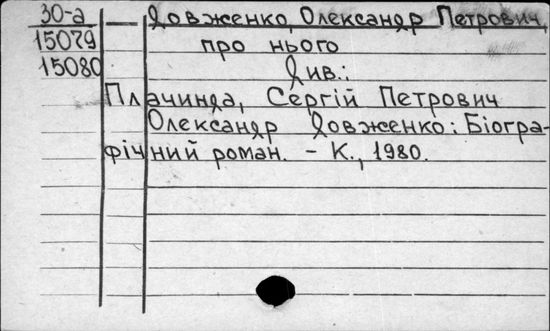 30-а — Довженко, Олександр Петрович,
15079 про нього
15080 Див.:
Плачинда, Сергій Петрович
Олександр Довженко: Біогра-
фічний роман. – К., 1980.